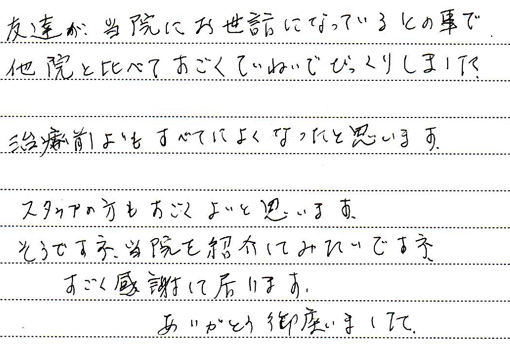 友達が、当院にお世話になっているとの事で、
他院と比べてすごくていねいでびっくりしました。
治療前よりもすべてによくなったと思います。
スタッフの方もすごくよいと思います。
そうですネ、当院を紹介してみたいですネ。
すごく感謝して居ります。
ありがとう御座いました。